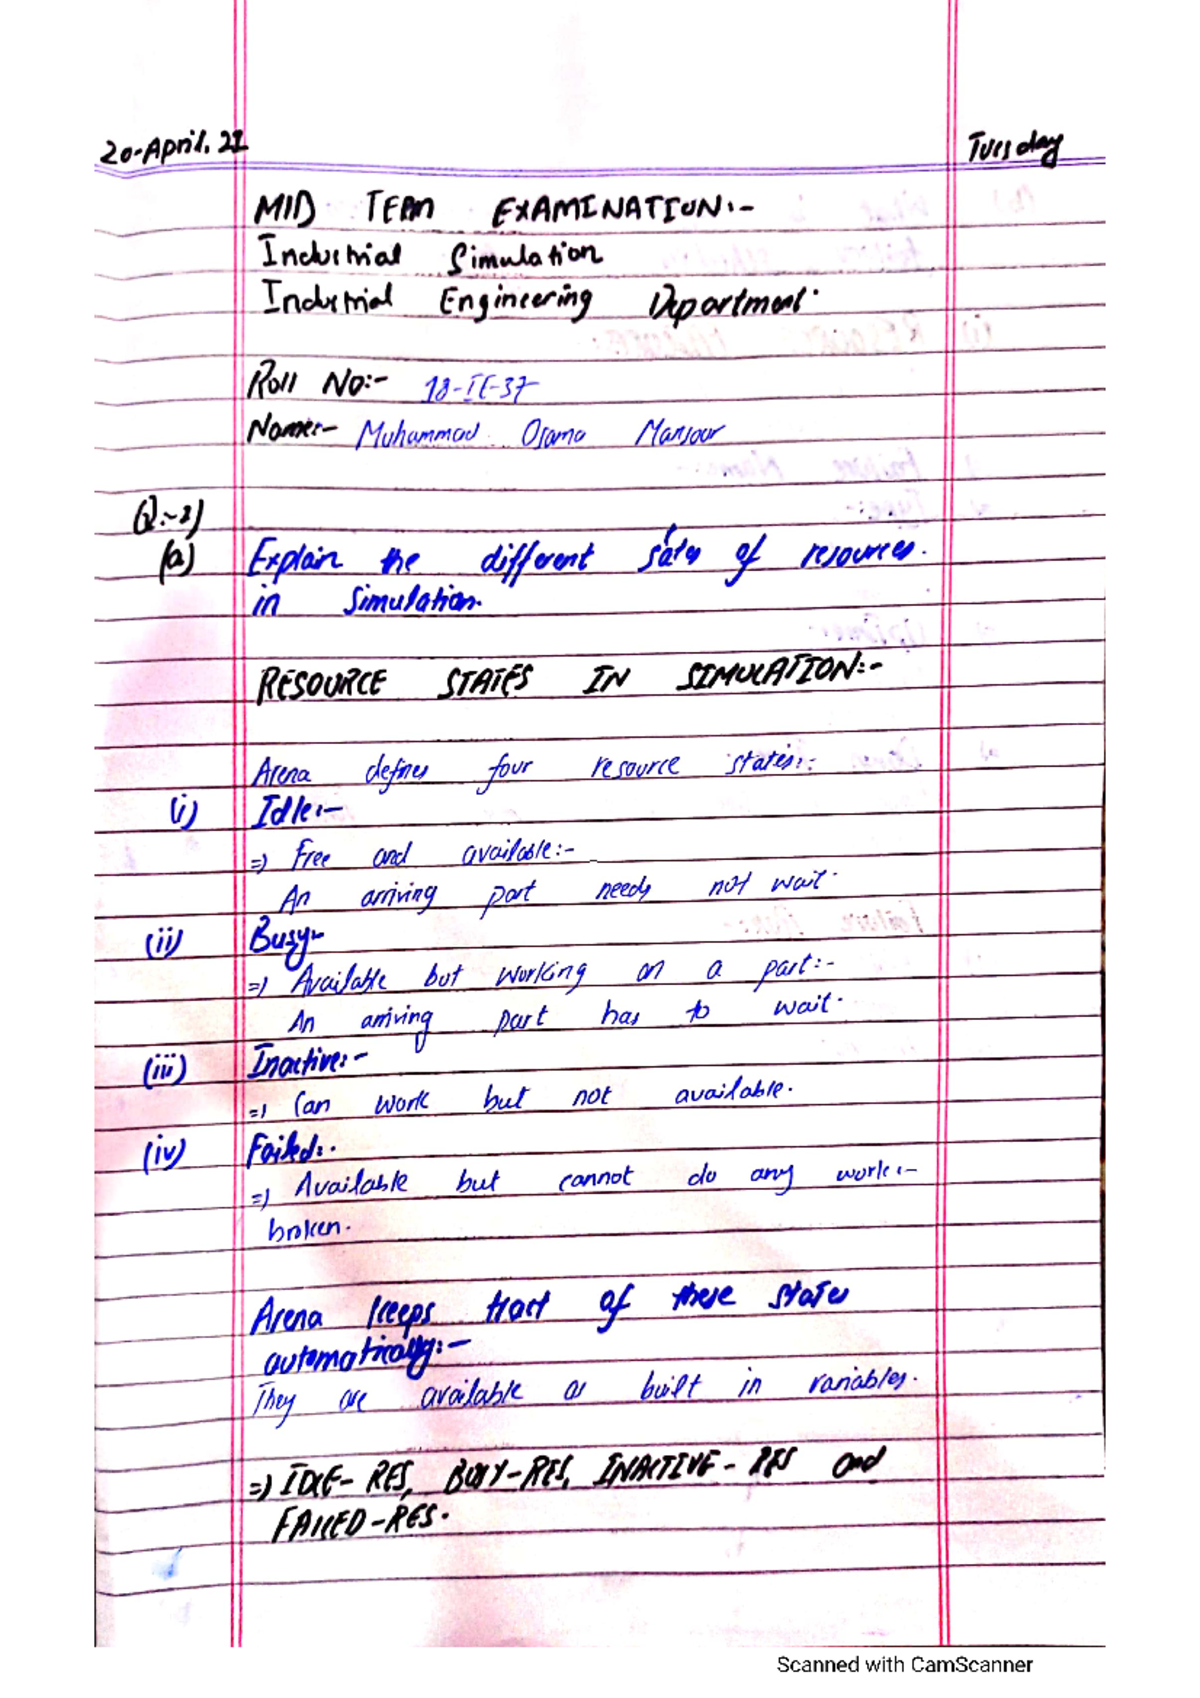 20-April, 21 Tuesday
MID TERM EXAMINATION:-
Industrial Simulation
Industrial Engineering Department.
Roll No:- 18-IE-37
Name:- Muhammad Osama Mansoor
Q:-2)
(a) Explain the different states of resources
in simulation.
RESOURCE STATES IN SIMULATION:-
Arena defines four resource states:-
(i) Idle:-
=> Free and available:-
An arriving part needs not wait.
(ii) Busy:-
=> Available but working on a part:-
An arriving part has to wait.
(iii) Inactive:-
=> Can work but not available.
(iv) Failed:-
=> Available but cannot do any work:-
broken.
Arena keeps tract of these states
automatically:-
They are available as built in variables.
=> IDLE-RES, BUSY-RES, INACTIVE-RES and
FAILED-RES.
Scanned with CamScanner